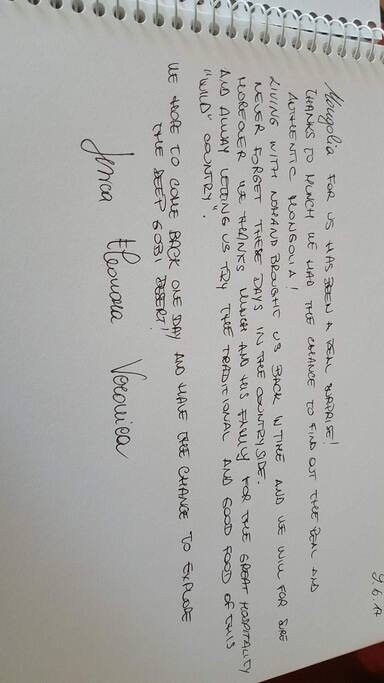 9.6.17
Mongolia FOR US HAS BEEN A REAL SURPRISE!
THANKS TO MUNCH WE HAD THE CHANCE TO FIND OUT THE REAL AND
AUTHENTIC MONGOLIA!
LIVING WITH NOMAND BROUGHT US BACK IN TIME AND WE WILL FOR SURE
NEVER FORGET THESE DAYS IN THE COUNTRYSIDE.
MOREOVER WE THANKS MUNCH AND HIS FAMILY FOR THE GREAT HOSPITALITY
AND ALWAY LETTING US TRY THE TRADITIONAL AND GOOD FOOD OF THIS
"WILD" COUNTRY".
WE HOPE TO COME BACK ONE DAY AND HAVE THE CHANCE TO EXPLORE
THE DEEP GOBI DESERT!!
Eleonora Veronica